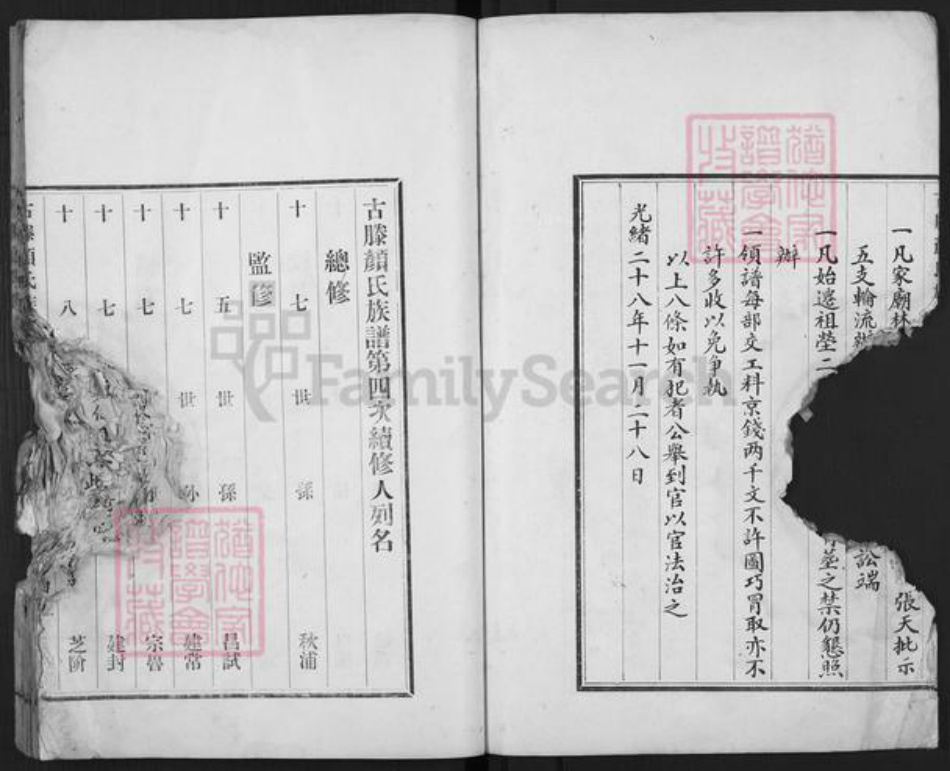 一凡家廟林
張天批示
五支輪流辦
訟端
一凡始遷祖塋二
塟之禁仍懇照
辦
一領譜每部交工料京錢两千文不許圖巧冒取亦不
許多收以免爭執
以上八條如有犯者公舉到官以官法治之
光緒二十八年十一月二十八日
古滕顔氏族譜第四次續修人列名
總修
十七世孫 秋浦
監修
十五世孫 昌試
十七世孙 建常
十七 宗魯
十七 建封
十八 芝階
古滕顔氏族
猶他家譜學會收藏
猶他家譜學會收藏
FamilySearch